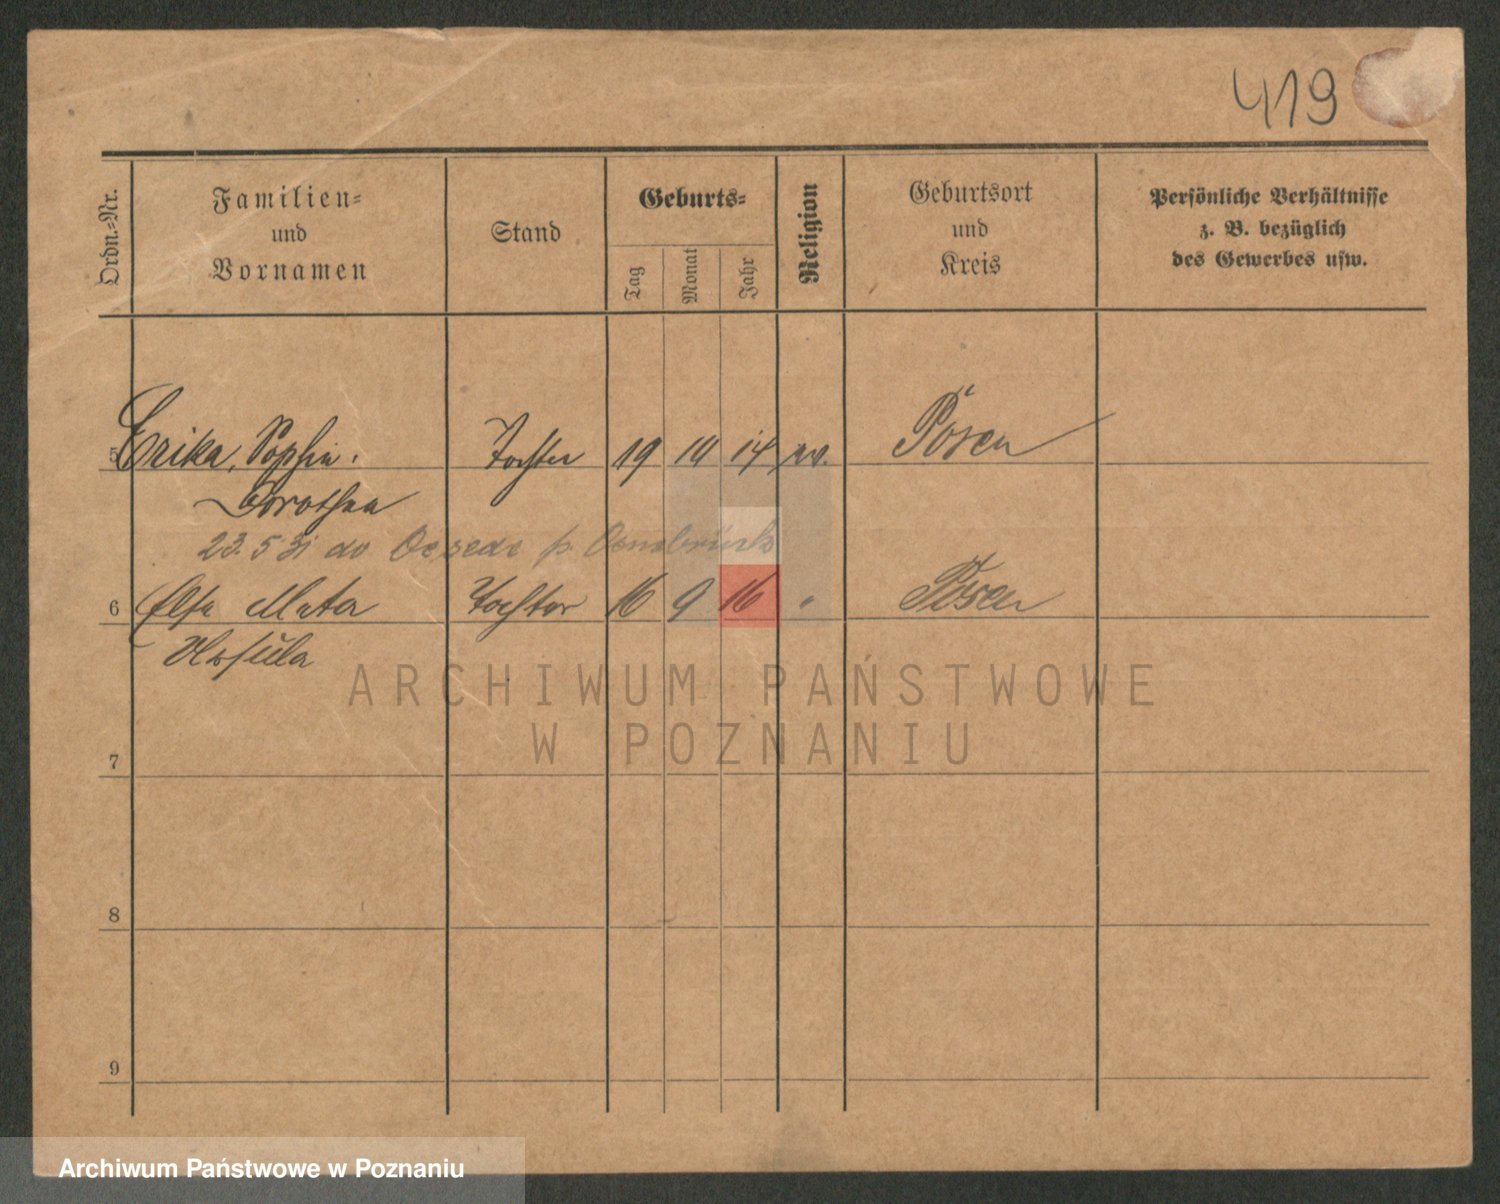 419
Ordn.-Nr.
Familien-
und
Vornamen
Stand
Geburts-
Tag
Monat
Jahr
Religion
Geburtsort
und
Kreis
Persönliche Verhältnisse
z. B. bezüglich
des Gewerbes usw.
5 Erika, Sophie Tochter 19 14 Posen
Dorothea
23. 5 31 do Oesede p. Osnabrück
6 Else Tochter 16 9 16 " Posen
Ursula
ARCHIWUM PAŃSTWOWE
W POZNANIU
7
8
9
Archiwum Państwowe w Poznaniu